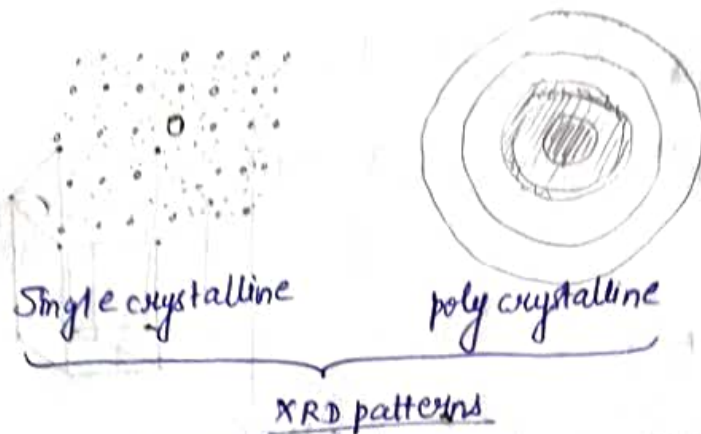 Single crystalline
poly crystalline
XRD patterns